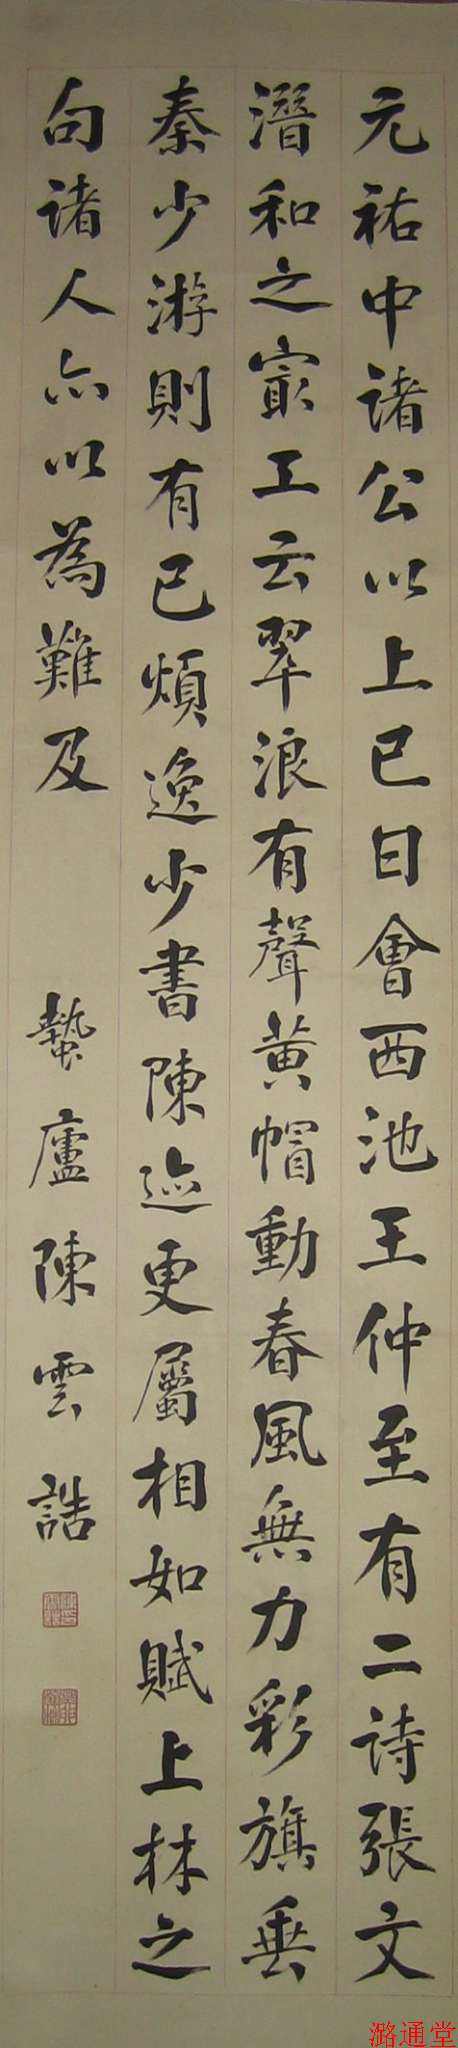 元祐中諸公以上巳日會西池王仲至有二詩張文
潛和之冣工云翠浪有聲黃帽動春風無力彩旗垂
秦少游則有已煩逸少書陳迹更屬相如賦上林之
句諸人亦以為難及
蟄廬陳雲誥
潞通堂